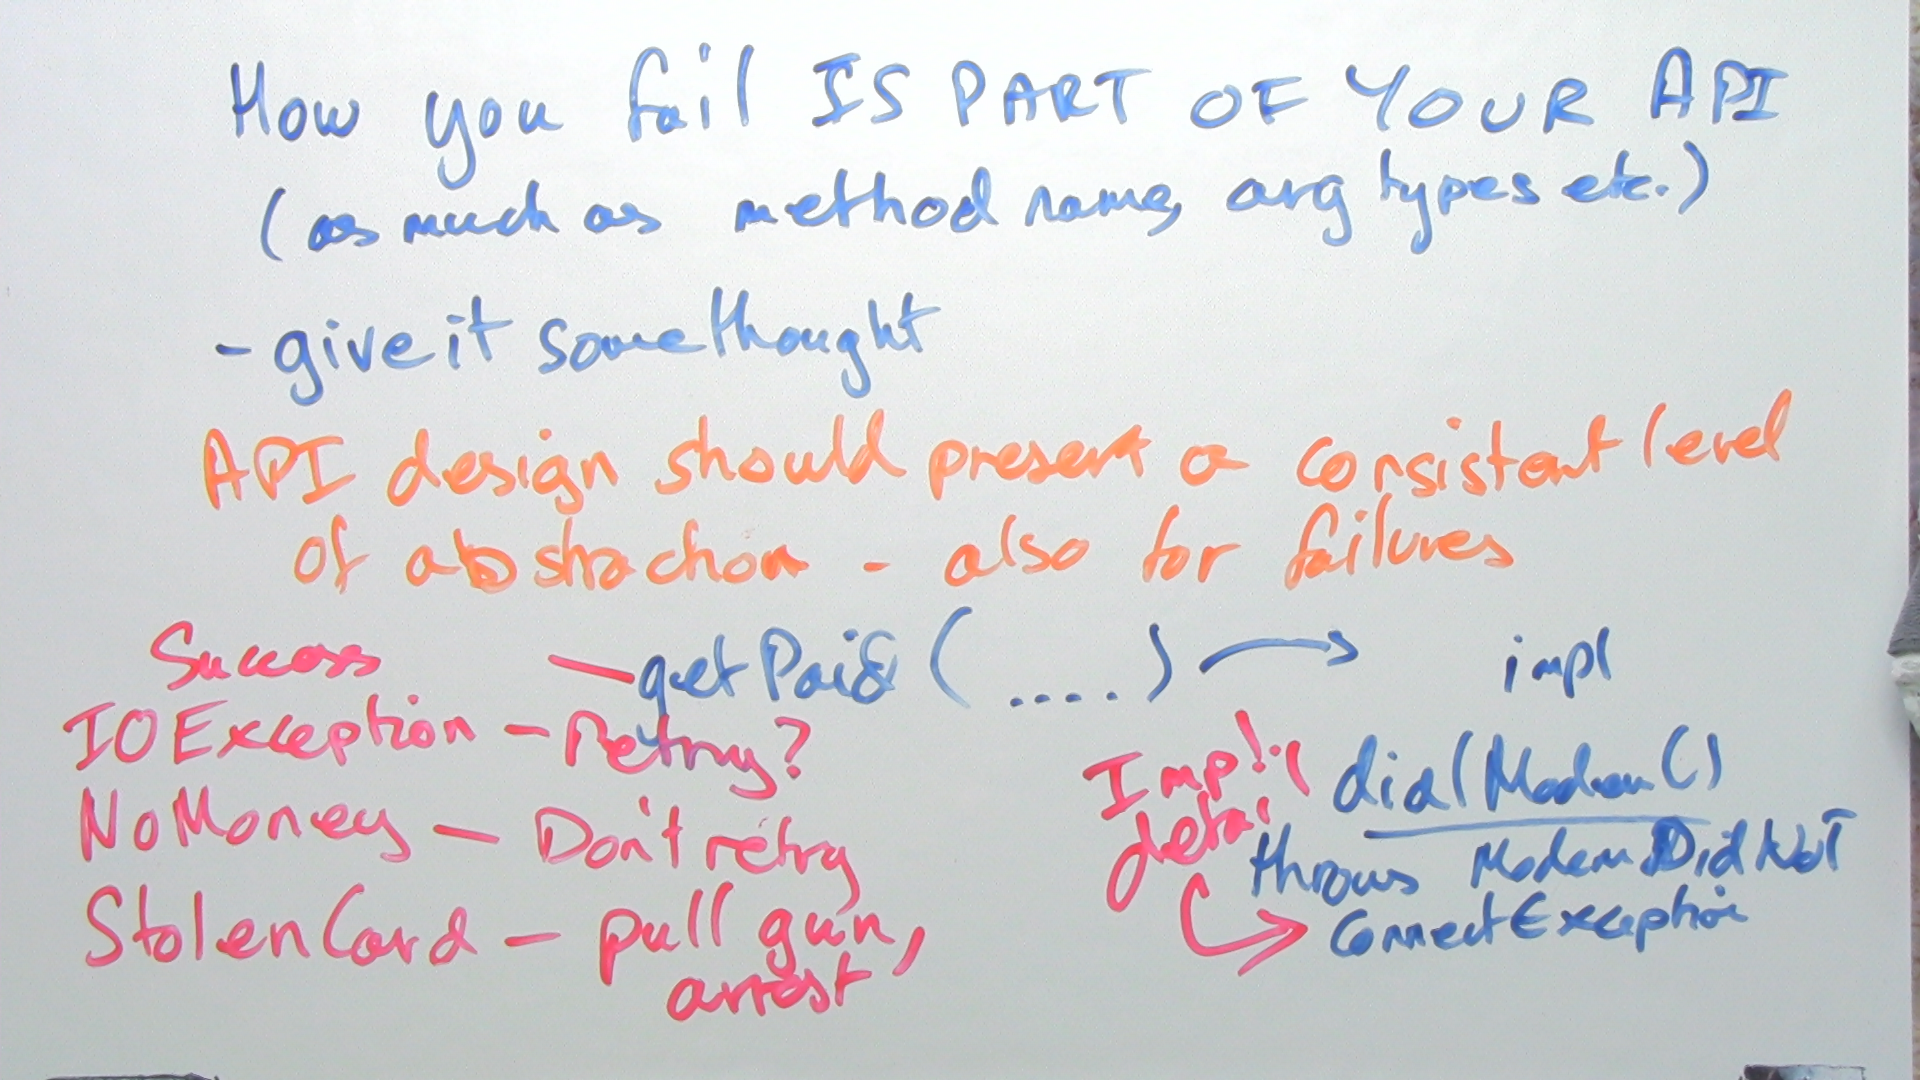 How you fail IS PART OF YOUR API
(as much as method name, arg types etc.)
- give it some thought
API design should present a consistent level
of abstraction - also for failures
Success — getPaid (....) → impl
IOException - Retry?
NoMoney - Don't retry
StolenCard - pull gun,
arrest
Impl.
detail
dialModem()
throws ModemDidNOT
ConnectException